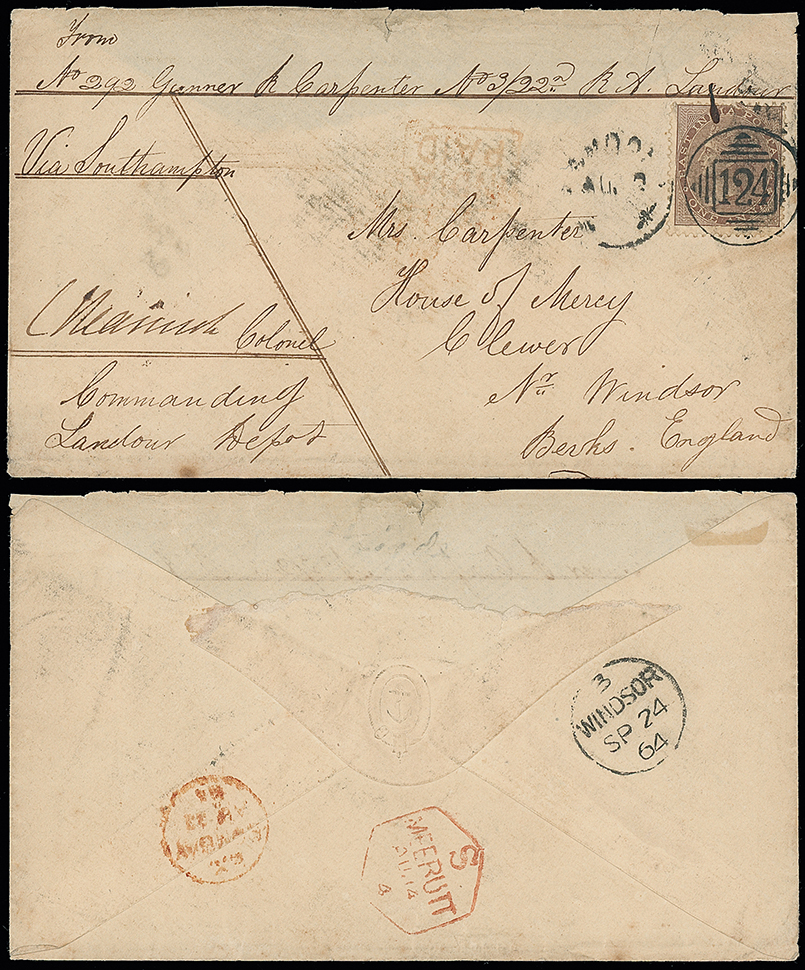 From
No 292 Gunner R Carpenter No 3/22nd R A. Landour
Via Southampton
INDIA
PAID
124
EAST INDIA POSTAGE
ONE
Mrs. Carpenter
House of Mercy
Clewer
Nr Windsor
Berks. England
Colonel
Commanding
Landour Depot
3
WINDSOR
SP 24
64
S
MEERUTT
AU.14
4